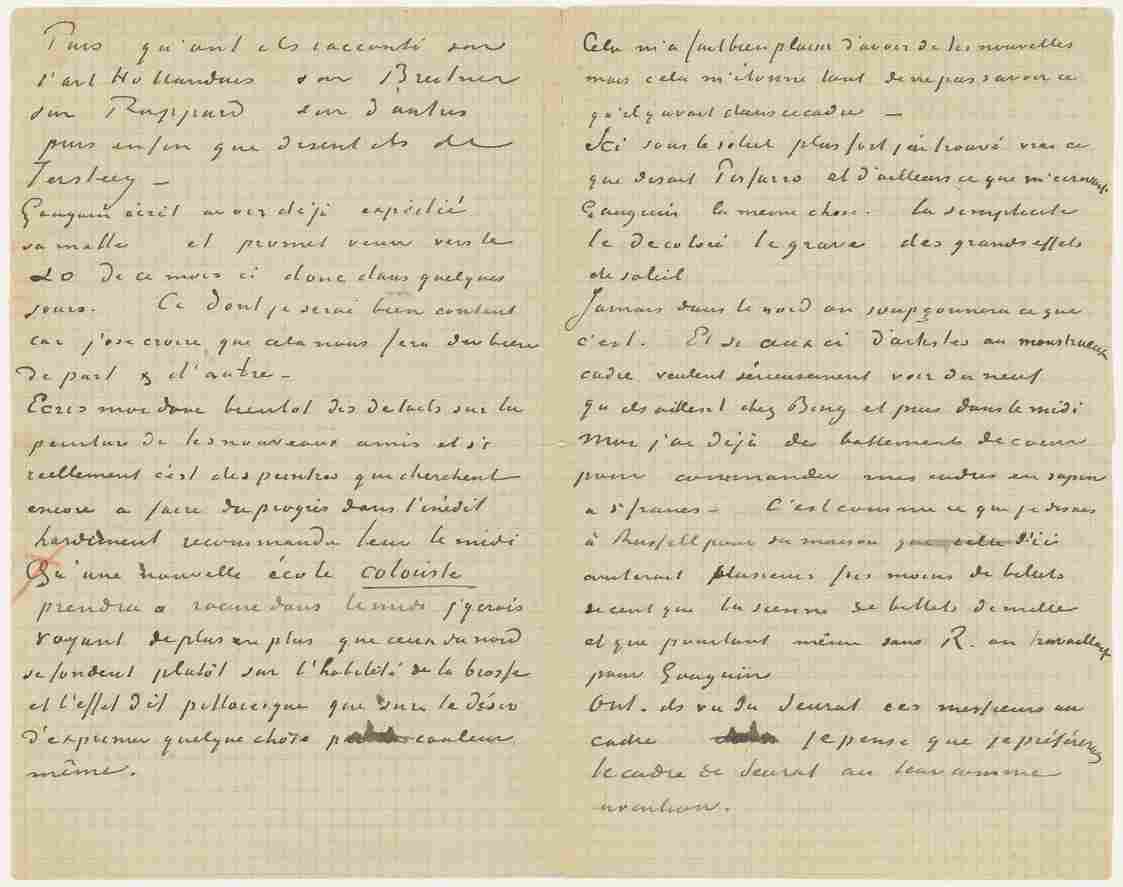 Puis qu'ont ils raconté sur
l'art Hollandais sur Breitner
sur Rappard sur d'autres
puis enfin que disent ils de
Tersteeg –
Gauguin écrit avoir déjà expédié
sa malle et promet venir vers le
20 de ce mois ci donc dans quelques
jours. Ce dont je serai bien content
car j'ose croire que cela nous fera du bien
de part & d'autre –
Ecris moi donc bientot des details sur la
peinture de tes nouveaux amis et si
reellement c'est des peintres qui cherchent
encore a faire du progrès dans l'inédit
hardiment recommande leur le midi
Qu'une nouvelle école coloriste
prendra racine dans le midi j'y crois
voyant de plus en plus que ceux du nord
se fondent plutôt sur l'habileté de la brosse
et l'effet dit pittoresque que sur le désir
d'exprimer quelque chose par la couleur
même.
Cela m'a fait bien plaisir d'avoir de tes nouvelles
mais cela m'étonne tant de ne pas savoir ce
qu'il y avait dans ce cadre –
Ici sous le soleil plus fort j'ai trouvé vrai ce
que disait Pissarro et d'ailleurs ce que m'ecrivait
Gauguin la meme chose. la simplicité
le decoloré le grave des grands effets
de soleil
Jamais dans le nord on soupçonnera ce que
c'est. Et si ceux ci d'artistes au monstrueux
cadre veulent sérieusement voir du neuf
qu'ils aillent chez Bing et puis dans le midi
Moi j'ai déjà des battements de coeur
pour commander mes cadres en sapin
a 5 francs – C'est comme ce que je disais
à Russell pour sa maison que celle d'ici
couterait plusieurs fois moins de billets
de cent que la sienne de billets de mille
et que pourtant même sans R. on travaillait
pour Gauguin
Ont-ils vu du Seurat ces messieurs au
cadre je pense que je préférerais
le cadre de Seurat au leur comme
invention.